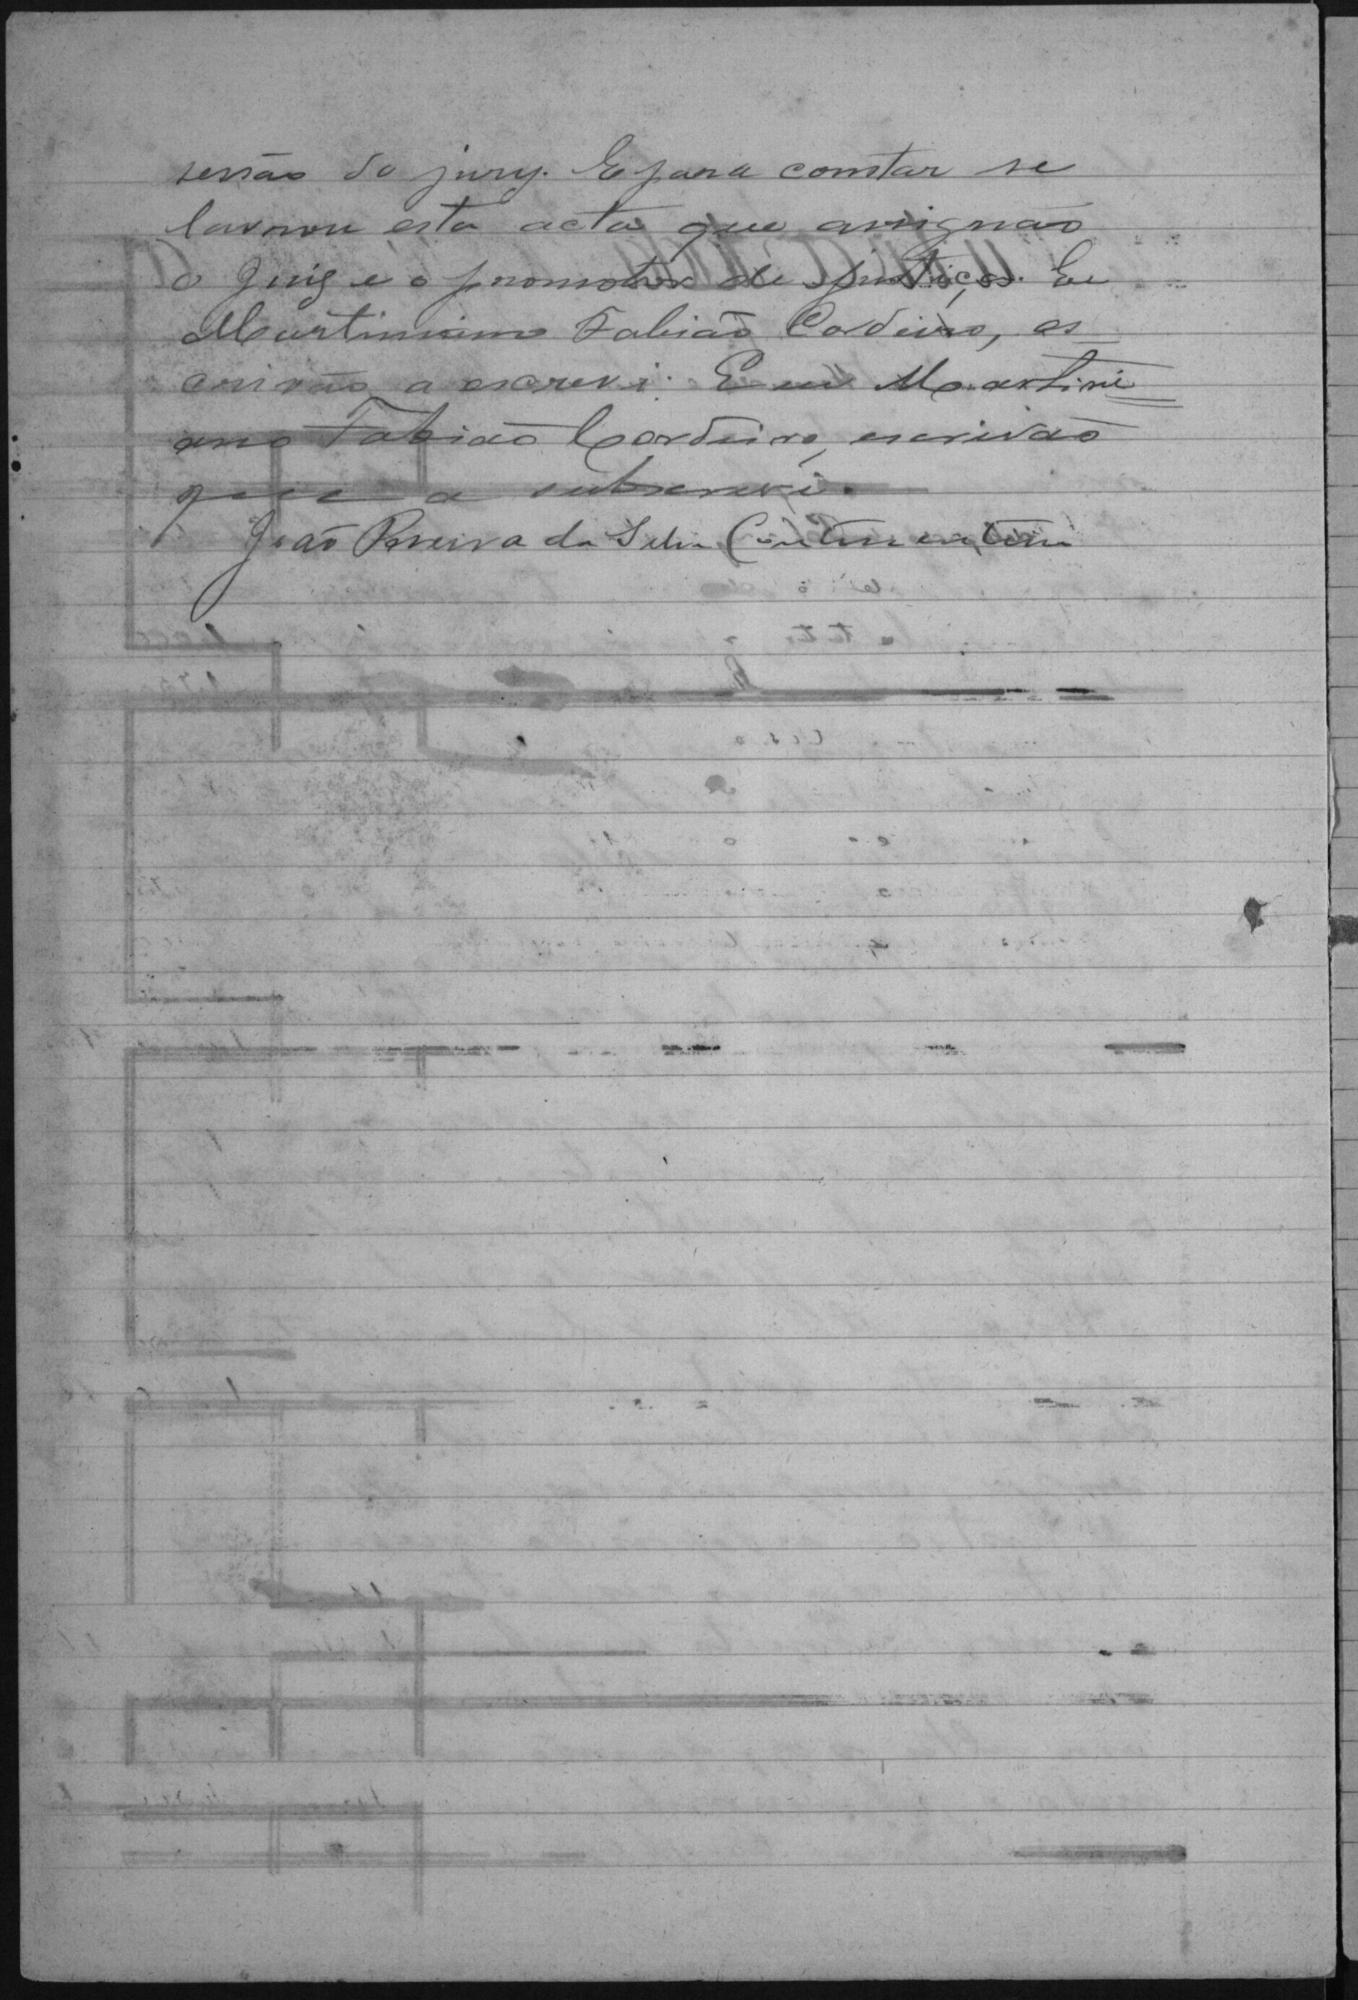 sessão do jury. E para constar se
lavrou esta acta que assignão
o Juiz e o promotor de justiça. Eu
Martiniano Fabião Cordeiro, es=
crivão a escrevi. E eu Martini=
ano Fabião Cordeiro, escrivão
que a subscrevi.
João Pereira da Silva Continentino